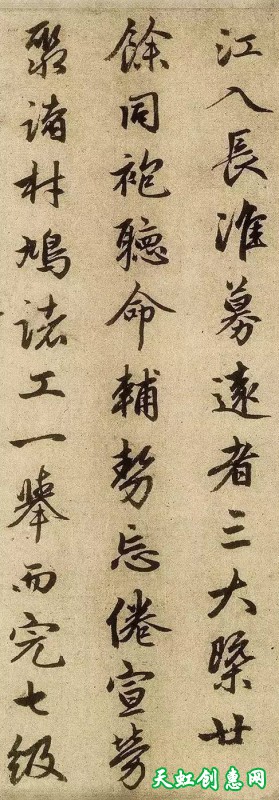 江入長淮募遠者三大檗廿
餘同袍聽命輔勢忘倦宣勞
聚諸材鳩諸工一舉而完七級
天虹创惠网